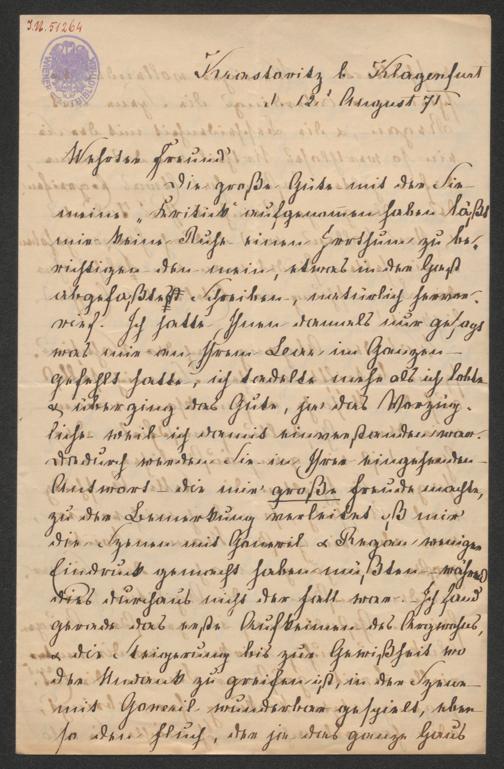 I.N. 51264
Krastowitz b. Klagenfurt
d. 12t August 71
Wehrter Freund!
Die große Güte mit der Sie
meine „Kritick" aufgenommen haben läßt
mir keine Ruhe einen Irrthum zu be-
richtigen den mein, etwas in der Hast
abgefaßtes Schreiben, natürlich hervor-
rief. Ich hatte Ihnen damals nur gesagt
was mir an Ihrem Lear im Ganzen
gefehlt hatte, ich tadelte mehr als ich lobte
& überging das Gute, ja das Vorzüg-
liche weil ich damit einverstanden war.
Dadurch werden Sie in Ihrer eingehenden
Antwort – die mir große Freude machte,
zu der Bemerkung verleitet, daß mir
die Szenen mit Goneril & Regan weniger
Eindruck gemacht haben müßten – während
dies durchaus nicht der Fall war. Ich fand
gerade das erste Aufkeimen des Argwohns,
& die Steigerung bis zur Gewißheit wo
der Undank zu greifen ist, in der Szene
mit Goneril wunderbar gespielt, eben
so den Fluch, der ja das ganze Haus